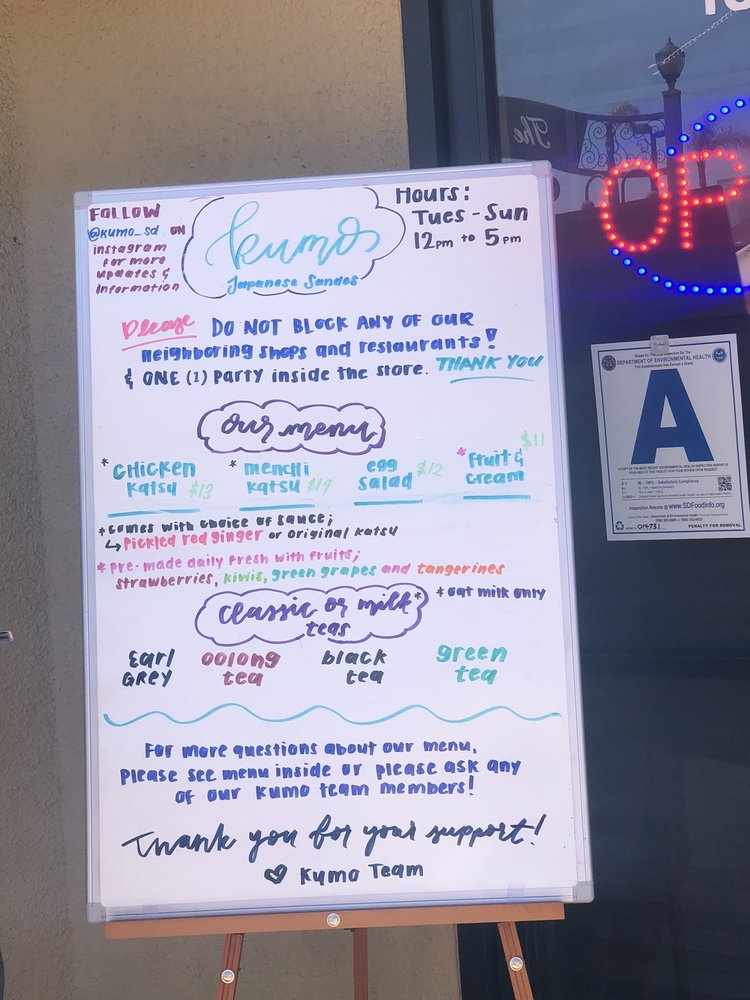 FOLLOW
@kumo_sd ON
instagram
for more
updates &
information
kumo
Japanese Sandos
Hours:
Tues - Sun
12pm to 5pm
Please DO NOT BLOCK ANY OF OUR
neighboring shops and restaurants!
& ONE (1) party inside the store. THANK YOU
our menu
*CHICKEN katsu $13
*menchi katsu $14
egg salad $12
*fruit & cream $11
*comes with choice of sauce;
↳ pickled red ginger or original katsu
*pre-made daily fresh with fruits;
strawberries, kiwis, green grapes and tangerines
classic or milk*
teas
*oat milk only
Earl GREY
oolong tea
black tea
green tea
For more questions about our menu,
please see menu inside or please ask any
of our kumo team members!
Thank you for your support!
♡ kumo Team
The
OP
DEPARTMENT OF ENVIRONMENTAL HEALTH
This Establishment Has Earned a Grade
A
Inspection Results @ www.SDFoodInfo.org
PENALTY FOR REMOVAL